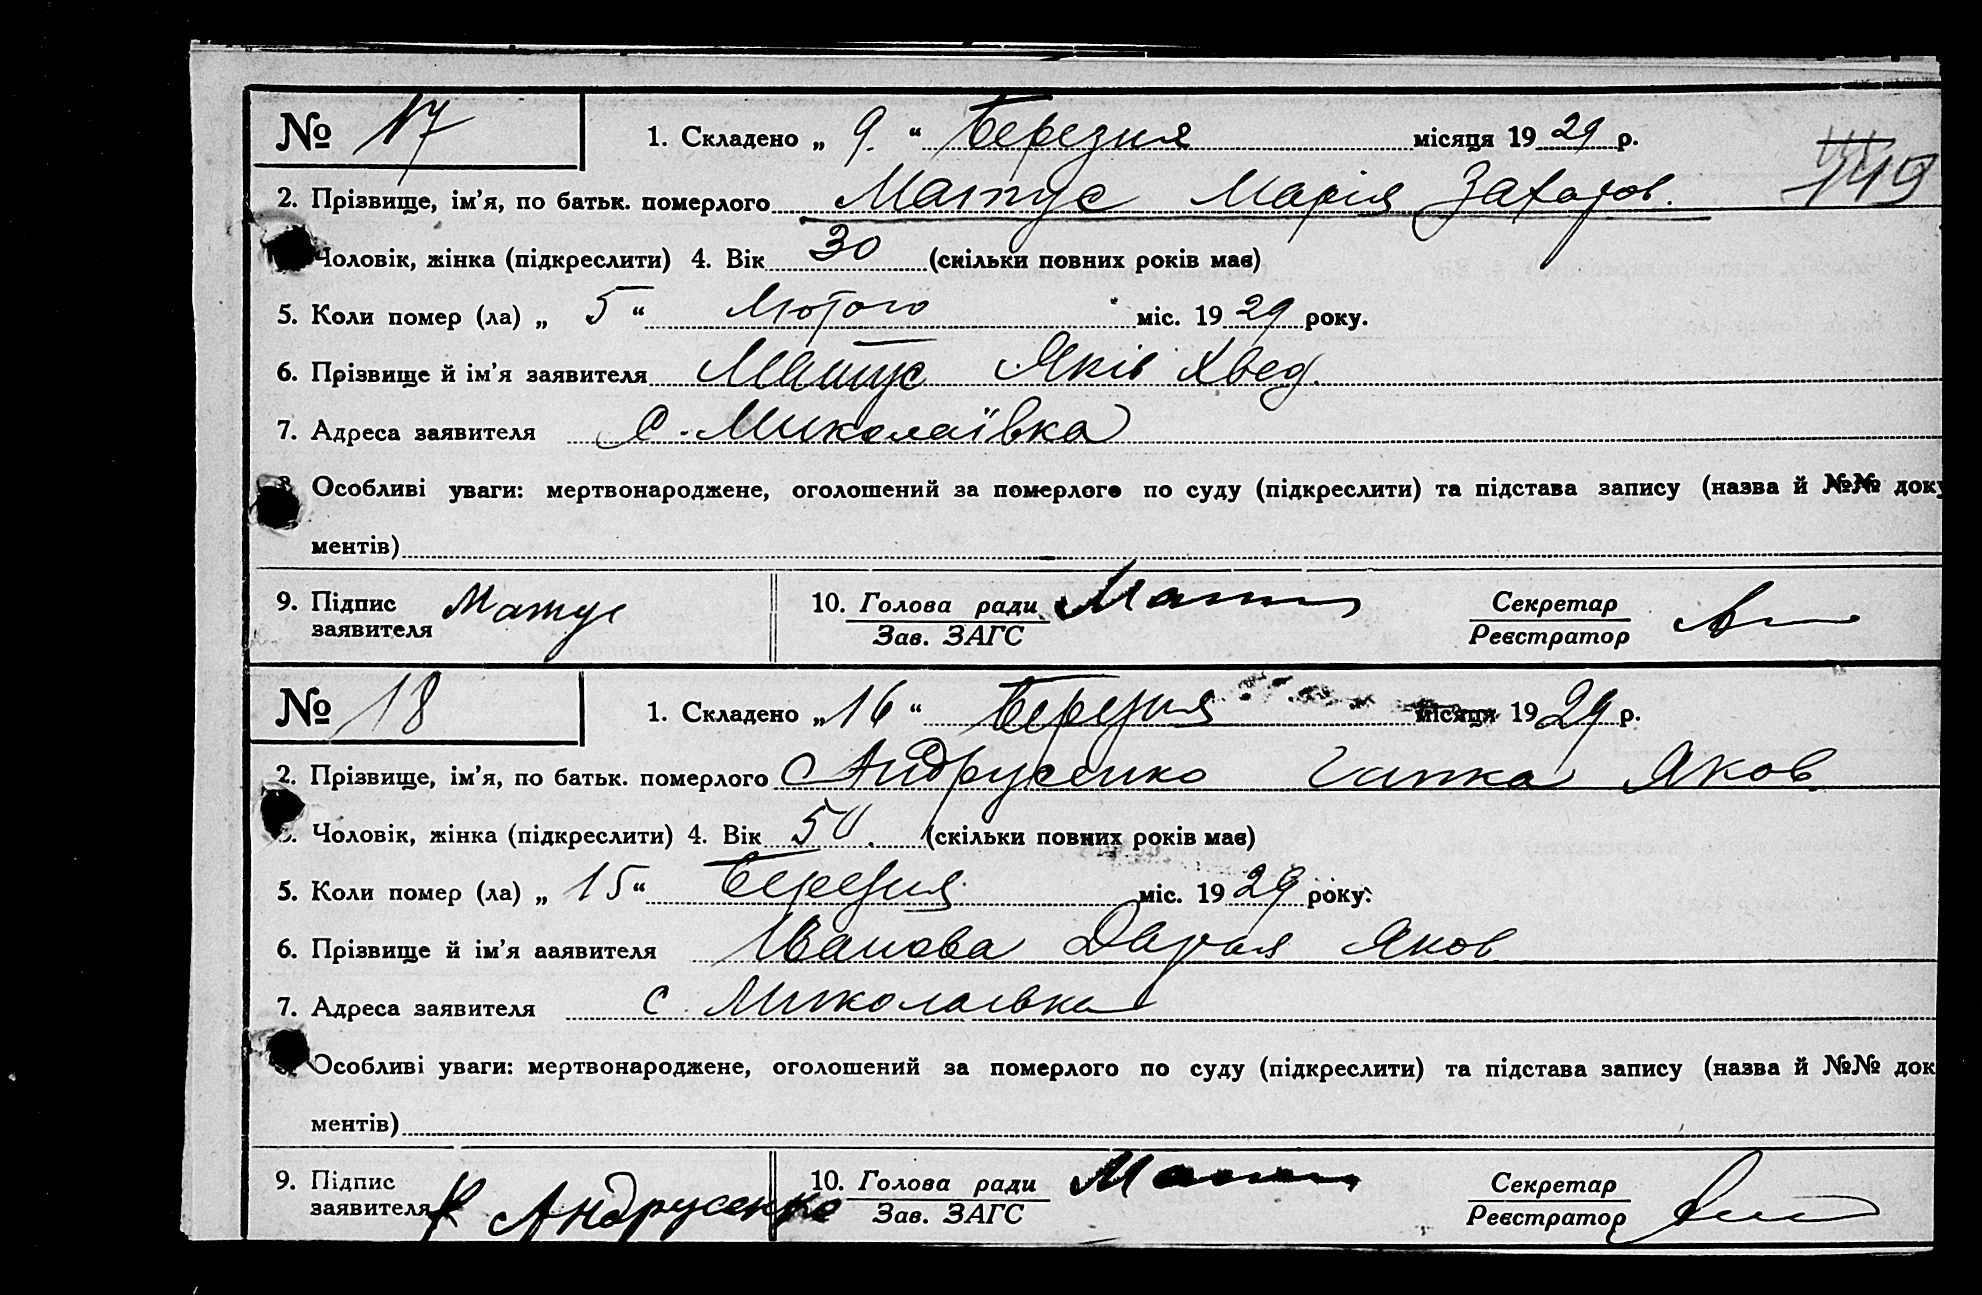 № 17 1. Складено „ 9. “ Березня місяця 1929 р.
149
2. Прізвище, ім'я, по батьк. померлого Матус Марія Захаров.
Чоловік, жінка (підкреслити) 4. Вік 30 (скільки повних років має)
5. Коли помер (ла) „ 5 “ Лютого міс. 1929 року.
6. Прізвище й ім'я заявителя Матус Яків Хвед.
7. Адреса заявителя с. Миколаївка
Особливі уваги: мертвонароджене, оголошений за померлого по суду (підкреслити) та підстава запису (назва й №№ доку
ментів)
9. Підпис заявителя Матус 10. Голова ради Зав. ЗАГС Секретар Реєстратор
№ 18 1. Складено „ 16 “ Березня місяця 1929 р.
2. Прізвище, ім'я, по батьк. померлого Андрусенко Гапка Яков.
3. Чоловік, жінка (підкреслити) 4. Вік 50. (скільки повних років має)
5. Коли помер (ла) „ 15 “ Березня міс. 1929 року.
6. Прізвище й ім'яааявителя Іванова Дарья Яков
7. Адреса заявителя с Миколаївка
Особливі уваги: мертвонароджене, оголошений за померлого по суду (підкреслити) та підстава запису (назва й №№ док
ментів)
9. Підпис заявителя Андрусенко 10. Голова ради Зав. ЗАГС Секретар Реєстратор